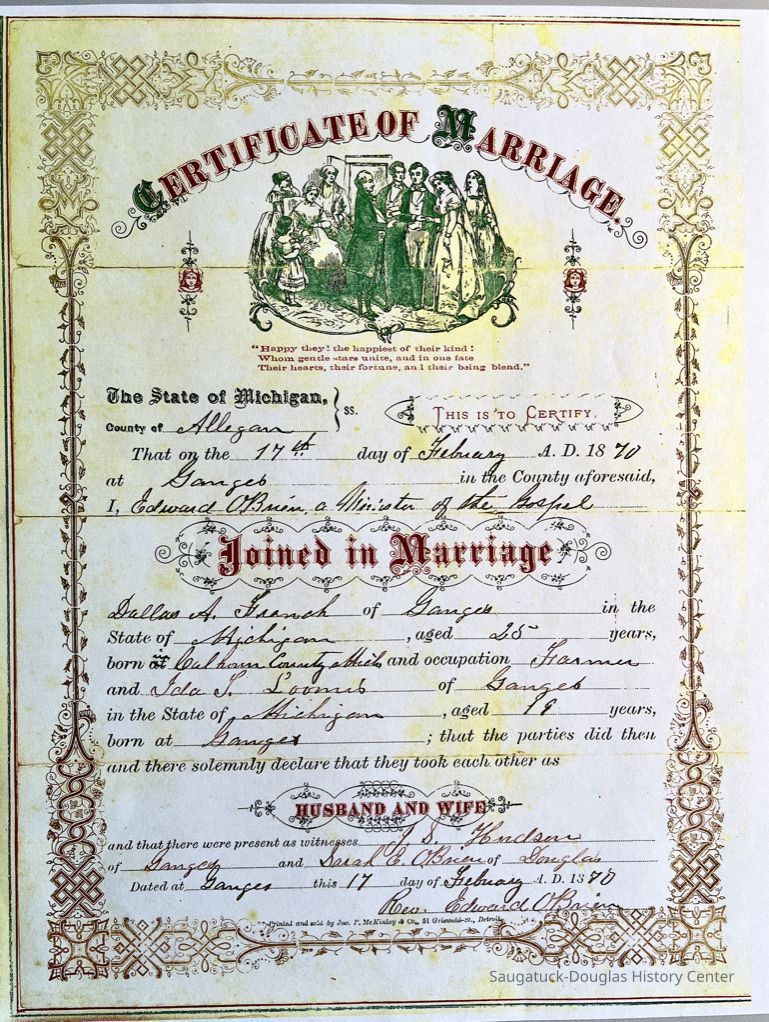 CERTIFICATE OF MARRIAGE.
"Happy they! the happiest of their kind!
Whom gentle stars unite, and in one fate
Their hearts, their fortune, and their being blend."
The State of Michigan, } ss.
County of Allegan
THIS IS TO CERTIFY,
That on the 17th day of Febuary A. D. 1870
at Ganges in the County aforesaid,
I, Edward O'Brien, a Minister of the Gospel
Joined in Marriage
Dallas A. French of Ganges in the
State of Michigan, aged 25 years,
born in Calhoun County Mich and occupation Farmer
and Ida S. Loomis of Ganges
in the State of Michigan, aged 19 years,
born at Ganges; that the parties did then
and there solemnly declare that they took each other as
HUSBAND AND WIFE
and that there were present as witnesses S. Hudson
of Ganges and Sarah E. O'Brien of Douglas
Dated at Ganges this 17 day of Febuary A. D. 1870
Rev. Edward O'Brien
Printed and sold by Jno. F. McKinlay & Co., 51 Griswold-St., Detroit.
Saugatuck-Douglas History Center